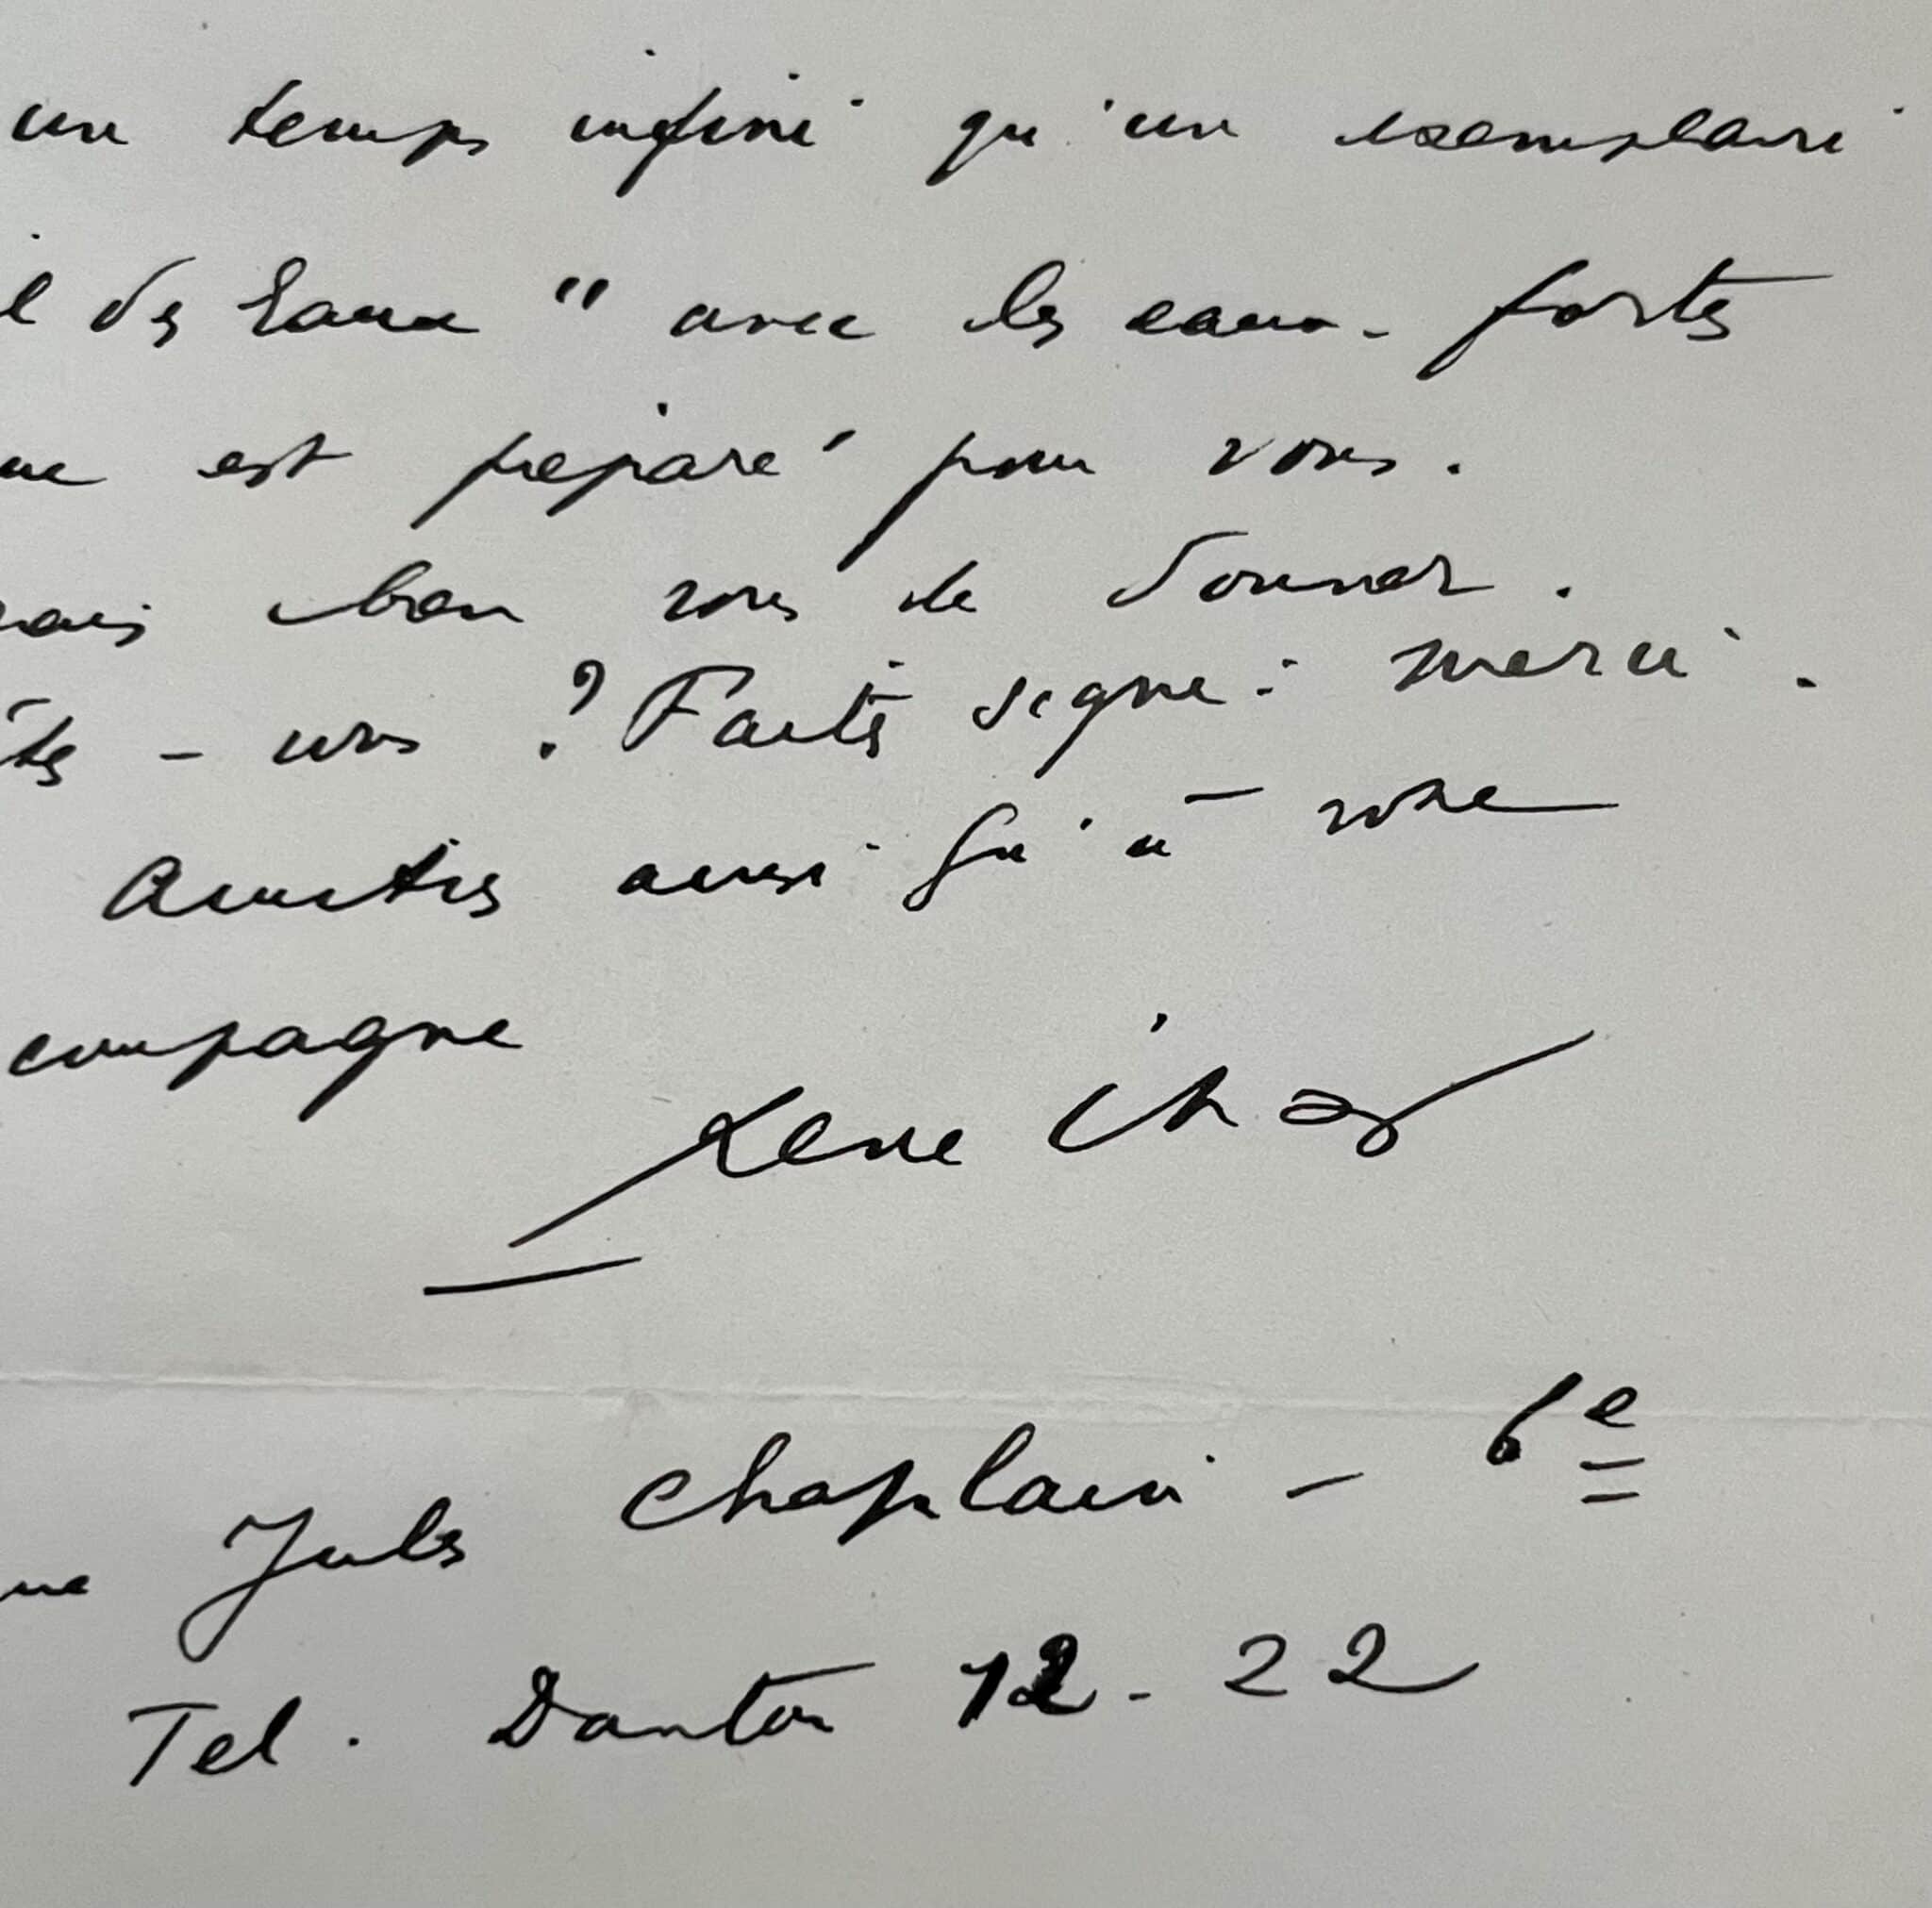 un temps infini qu'un exemplaire
des Eaux" avec les eaux-fortes
est préparé pour vous.
bien vous le donner.
- vous ? Faites signe : merci.
Amitiés ainsi qu'à votre
compagne
René Char
Jules Chaplain - 6e
Tel. Danton 12-22